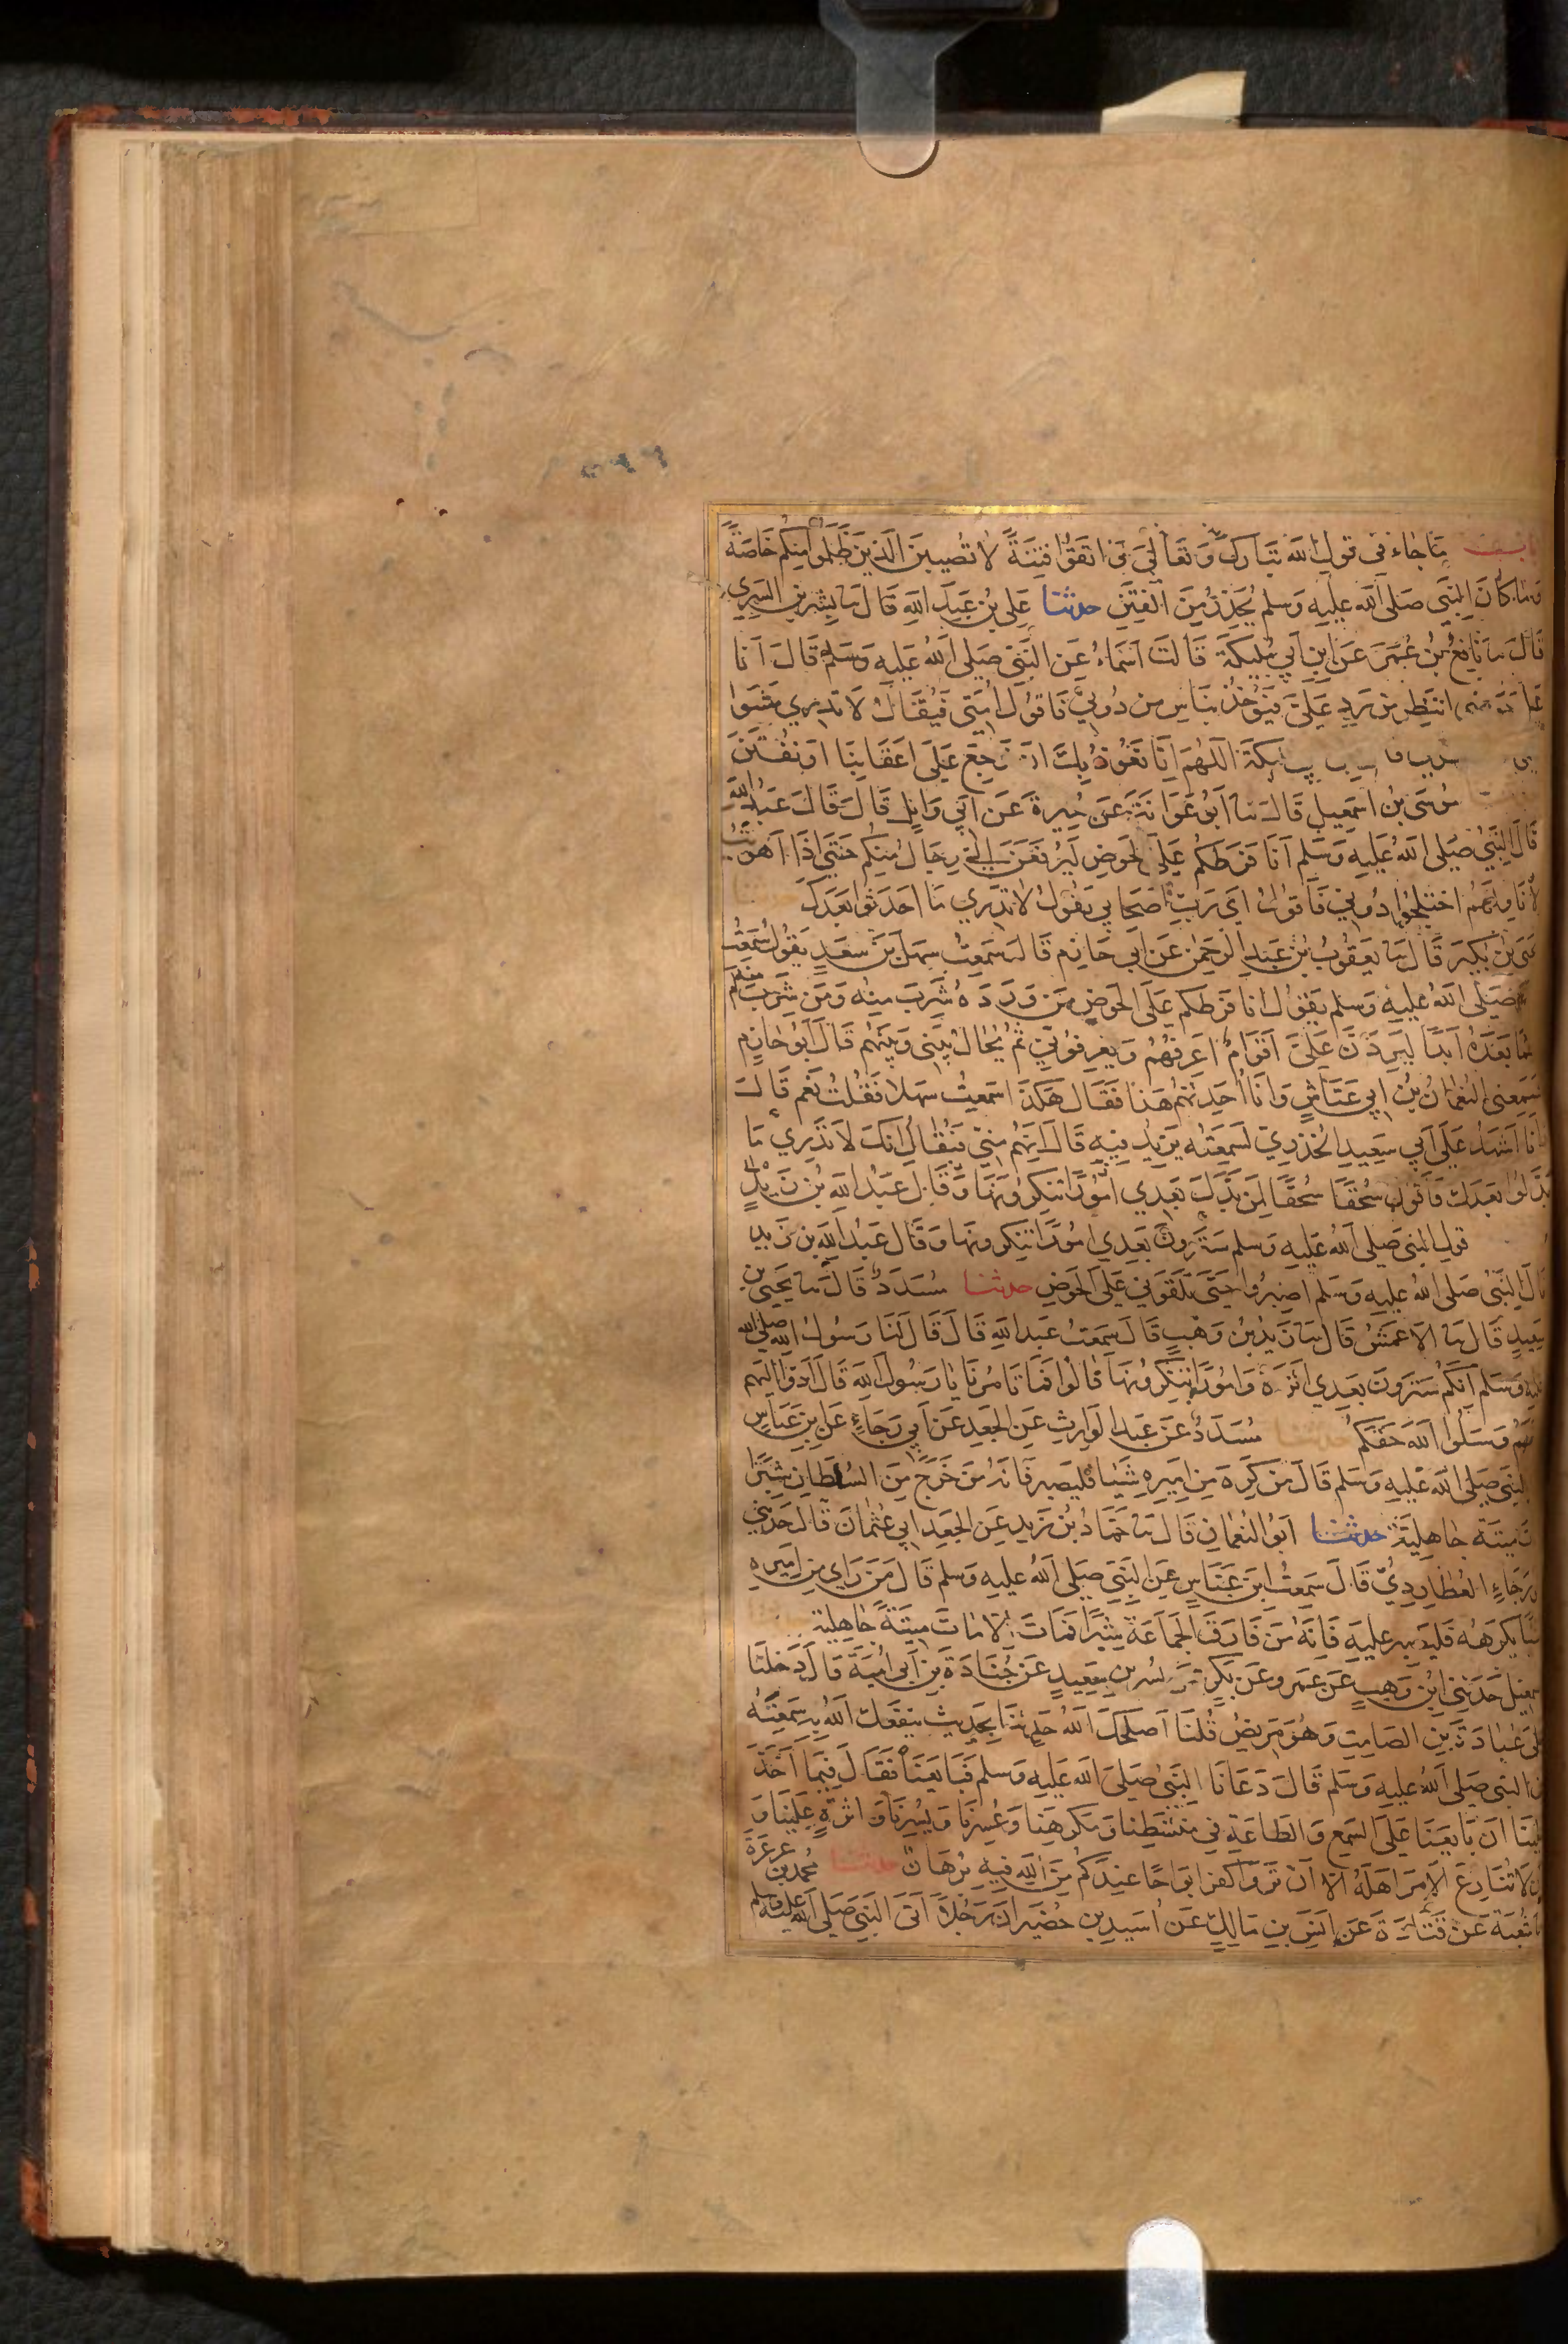 باب ما جاء في قول الله تبارك وتعالى واتقوا فتنة لا تصيبن الذين ظلموا منكم خاصة
وما كان النبي صلى الله عليه وسلم يحذر من الفتن حدثنا علي بن عبد الله قال نا بشر بن السري
قال نا نافع بن عمر عن ابن أبي مليكة قالت أسماء عن النبي صلى الله عليه وسلم قال أنا
انتظر من يرد علي فيؤخذ بناس من دوني فأقول أمتي فيقال لا تدري مشوا
مليكة اللهم إنا نعوذ بك ان نرجع على أعقابنا أو نفتن
موسى بن اسمعيل قال نا أبو عوانة عن مغيرة عن أبي وائل قال قال عبد الله
قال النبي صلى الله عليه وسلم أنا فرطكم على الحوض ليرفعن إلي رجال منكم حتى إذا أهويت
لأناولهم اختلجوا دوني فأقول أي رب أصحابي يقول لا تدري ما أحدثوا بعدك
يحيى بن بكير قال نا يعقوب بن عبد الرحمن عن أبي حازم قال سمعت سهل بن سعد يقول سمعت
صلى الله عليه وسلم يقول انا فرطكم على الحوض من ورده شرب منه ومن شرب منه لم
يظما بعده أبدا ليردن علي أقوام أعرفهم ويعرفوني ثم يحال بيني وبينهم قال أبو حازم
فسمعني النعمان بن ابي عياش وانا أحدثهم هذا فقال هكذا سمعت سهلا فقلت نعم قال
وانا أشهد على أبي سعيد الخدري لسمعته يزيد فيه قال إنهم مني فيقال إنك لا تدري ما
بدلوا بعدك فأقول سحقا سحقا لمن بدل بعدي أمورا تنكرونها وقال عبد الله بن زيد
قول النبي صلى الله عليه وسلم سترون بعدي امورا تنكرونها وقال عبد الله بن زيد
قال النبي صلى الله عليه وسلم اصبروا حتى تلقوني على الحوض حدثنا مسدد قال نا يحيى بن
سعيد قال نا الاعمش قال نا زيد بن وهب قال سمعت عبد الله قال قال لنا رسول الله صلى الله
عليه وسلم إنكم سترون بعدي أثرة وامورا تنكرونها قالوا فما تامرنا يا رسول الله قال أدوا إليهم
حقهم وسلوا الله حقكم حدثنا مسدد عن عبد الوارث عن الجعد عن أبي رجاء عن ابن عباس
النبي صلى الله عليه وسلم قال من كره من اميره شيئا فليصبر فانه من خرج من السلطان شبرا
مات ميتة جاهلية حدثنا أبو النعمان قال نا حماد بن زيد عن الجعد ابي عثمان قال حدثني
ابو رجاء العطاردي قال سمعت ابن عباس عن النبي صلى الله عليه وسلم قال من راى من اميره
شيئا يكرهه فليصبر عليه فإنه من فارق الجماعة شبرا فمات إلا مات ميتة جاهلية
اسمعيل حدثني ابن وهب عن عمرو عن بكير عن بسر بن سعيد عن جنادة بن أبي أمية قال دخلنا
على عبادة بن الصامت وهو مريض قلنا أصلحك الله حدثنا بحديث ينفعك الله به سمعته
من النبي صلى الله عليه وسلم قال دعانا النبي صلى الله عليه وسلم فبايعنا فقال فيما أخذ
علينا ان بايعنا على السمع والطاعة في منشطنا ومكرهنا وعسرنا ويسرنا واثرة علينا و
أن لا ننازع الامر اهله الا ان تروا كفرا بواحا عندكم من الله فيه برهان حدثنا محمد بن عرعرة
نا شعبة عن قتادة عن انس بن مالك عن أسيد بن حضير ان رجلا أتى النبي صلى الله عليه وسلم